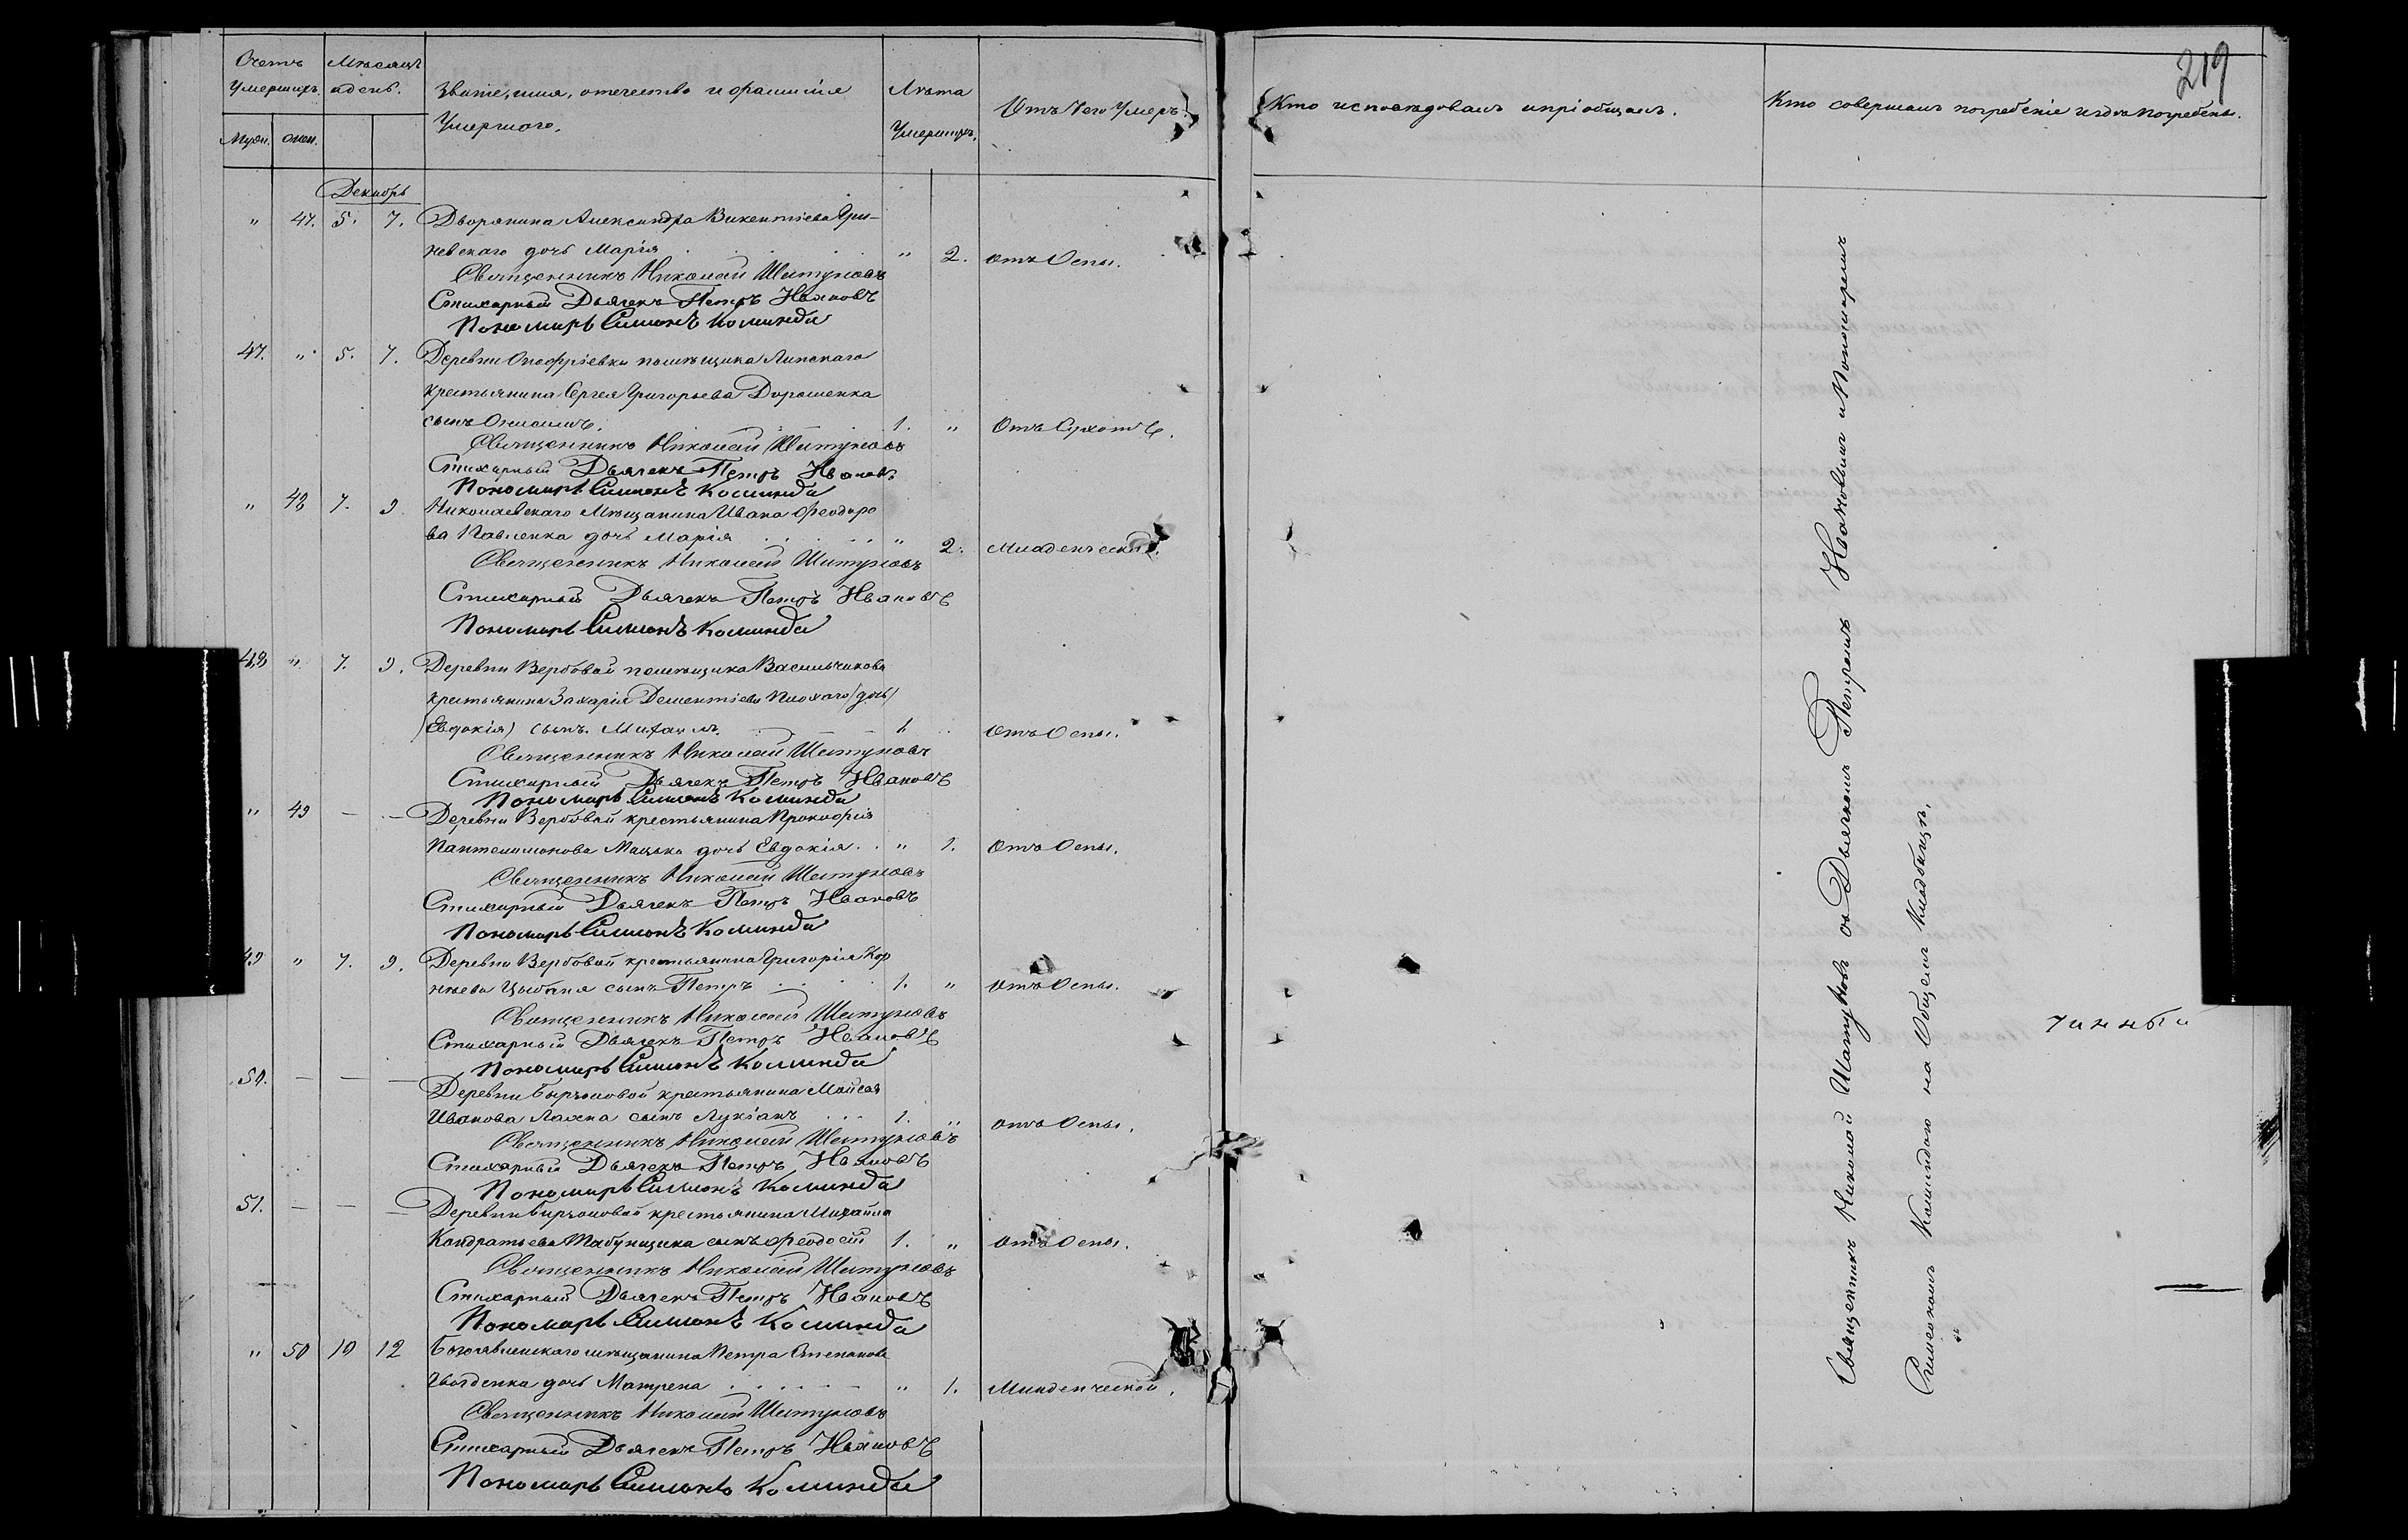 219
Счетъ Умершихъ.
Муж. жен.
Мѣсяцъ и день.
Званіе, имя, отечество и фамилія
Умершаго.
Лѣта
Умершихъ.
Отъ Чего Умеръ.
Кто исповѣдовалъ и пріобщалъ.
Кто совершалъ погребеніе и гдѣ погребены.
Декабрь
" 47. 5. 7. Дворянина Александра Викентіева Гри-
невскаго дочь Марія " 2. отъ Оспы.
Священникъ Николай Шатуновъ
Стихарный Дьячекъ Петръ Ивановъ
Пономарь Симонъ Коминда
47. " 5. 7. Деревни Онофріевки помѣщика Липскаго
крестьянина Сергея Григорьева Дорошенка
сынъ Онисимъ. 1. " Отъ Сухотъ.
Священникъ Николай Шатуновъ
Стихарный Дьячекъ Петръ Ивановъ
Пономарь Симонъ Коминда
" 48 7. 9. Николаевскаго Мѣщанина Ивана Феодоро
ва Павленка дочь Марія " 2. Младенческой.
Священникъ Николай Шатуновъ
Стихарный Дьячекъ Петръ Ивановъ
Пономарь Симонъ Коминда
48 " 7. 9. Деревни Вербовой помѣщика Васильчикова
крестьянина Захарія Дементіева Плохаго (дочь)
(Евдокія) сынъ Михаилъ 1. " отъ Оспы.
Священникъ Николай Шатуновъ
Стихарный Дьячекъ Петръ Ивановъ
Пономарь Симонъ Коминда
" 49 — — Деревни Вербовой крестьянина Прокофія
Пантелимонова Мацька дочь Евдокія " 1. отъ Оспы.
Священникъ Николай Шатуновъ
Стихарный Дьячекъ Петръ Ивановъ
Пономарь Симонъ Коминда
49 " 7. 9. Деревни Вербовой крестьянина Григорія Кор
нѣева Цыбаня сынъ Петръ 1. " отъ Оспы.
Священникъ Николай Шатуновъ
Стихарный Дьячекъ Петръ Ивановъ
Пономарь Симонъ Коминда
50. — — — Деревни Бирзоловой крестьянина Мойсея
Иванова Лахна сынъ Лукіанъ 1. " отъ Оспы.
Священникъ Николай Шатуновъ
Стихарный Дьячекъ Петръ Ивановъ
Пономарь Симонъ Коминда
51. — — — Деревни Бирзоловой крестьянина Михайла
Кондратьева Табунщика сынъ Феодосій 1. " отъ Оспы.
Священникъ Николай Шатуновъ
Стихарный Дьячекъ Петръ Ивановъ
Пономарь Симонъ Коминда
" 50 10 12 Богоявленскаго мѣщанина Петра Степанова
Гвозденка дочь Матрена " 1. Младенческой.
Священникъ Николай Шатуновъ
Стихарный Дьячекъ Петръ Ивановъ
Пономарь Симонъ Коминда
Священникъ Николай Шатуновъ съ Дьячкомъ Петромъ Ивановымъ и Пономаремъ
Симономъ Коминдою на Общемъ Кладбищѣ.